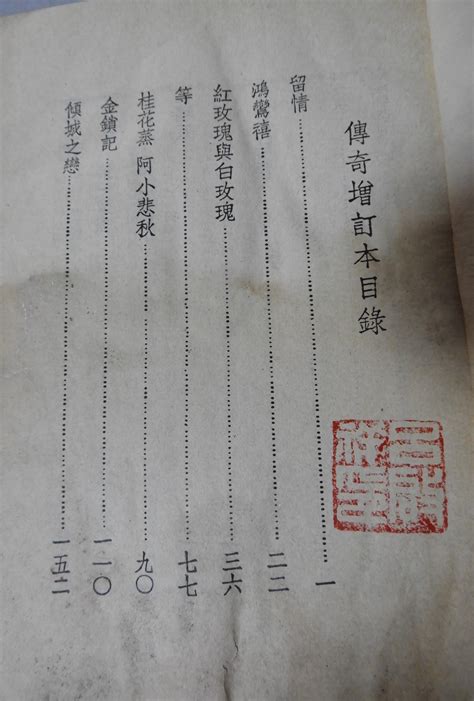 傳奇增訂本目錄
留情⋯⋯⋯⋯一
鴻鸞禧⋯⋯⋯⋯二二
紅玫瑰與白玫瑰⋯⋯⋯⋯三六
等⋯⋯⋯⋯七七
桂花蒸 阿小悲秋⋯⋯⋯⋯九〇
金鎖記⋯⋯⋯⋯一一〇
傾城之戀⋯⋯⋯⋯一五二